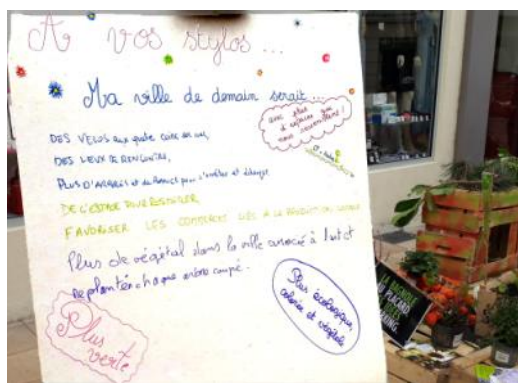 A vos stylos ...
Ma ville de demain serait ...
avec plus
d'espaces qui
nous rassemblent !
DES VELOS aux quatre coins en rue,
DES LIEUX DE RENCONTRE,
PLUS D'ARBRES et de pour s'arrêter et échanger
DE L'ESPACE POUR RESPIRER
FAVORISER LES COMMERCES LIÉS À LA PRODUCTION LOCALE
Plus de végétal dans la ville associé à l'art et
Replanter chaque arbre coupé.
Plus
verte
Plus écologique,
colorée et végétale
LA BAGNOLE
AU PLACARD